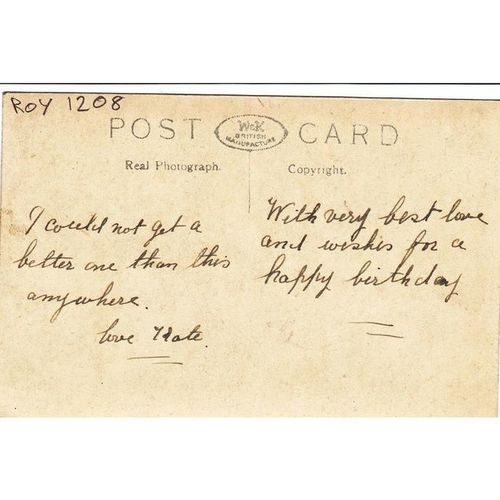 ROY 1208
POST CARD
W&K
BRITISH
MANUFACTURE
Real Photograph.
Copyright.
I could not get a
better one than this
anywhere.
love Kate.
With very best love
and wishes for a
happy birthday